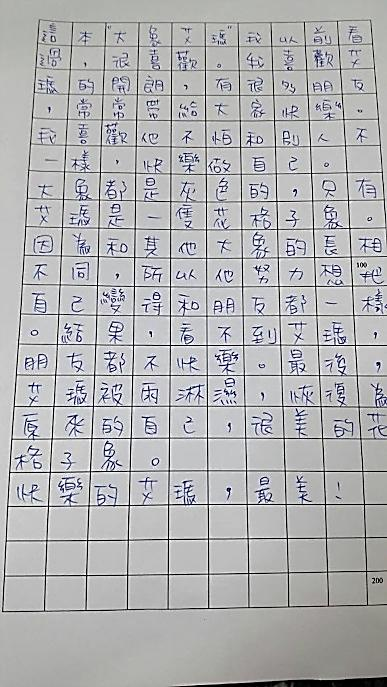 這本"大象艾瑪"我以前看
過，很喜歡。我喜歡艾
瑪的開朗，有很多朋友
，常常帶給大家快樂。
我喜歡他不怕和別人不
一樣，快樂做自己。
大象都是灰色的，只有
艾瑪是一隻花格子象。
因為和其他大象的長相
不同，所以他努力想把
100
自己變得和朋友都一樣
。結果，看不到艾瑪，
朋友都不快樂。最後，
艾瑪被雨淋濕，恢復為
原來的自己，很美的花
格子象。
快樂的艾瑪，最美！
200